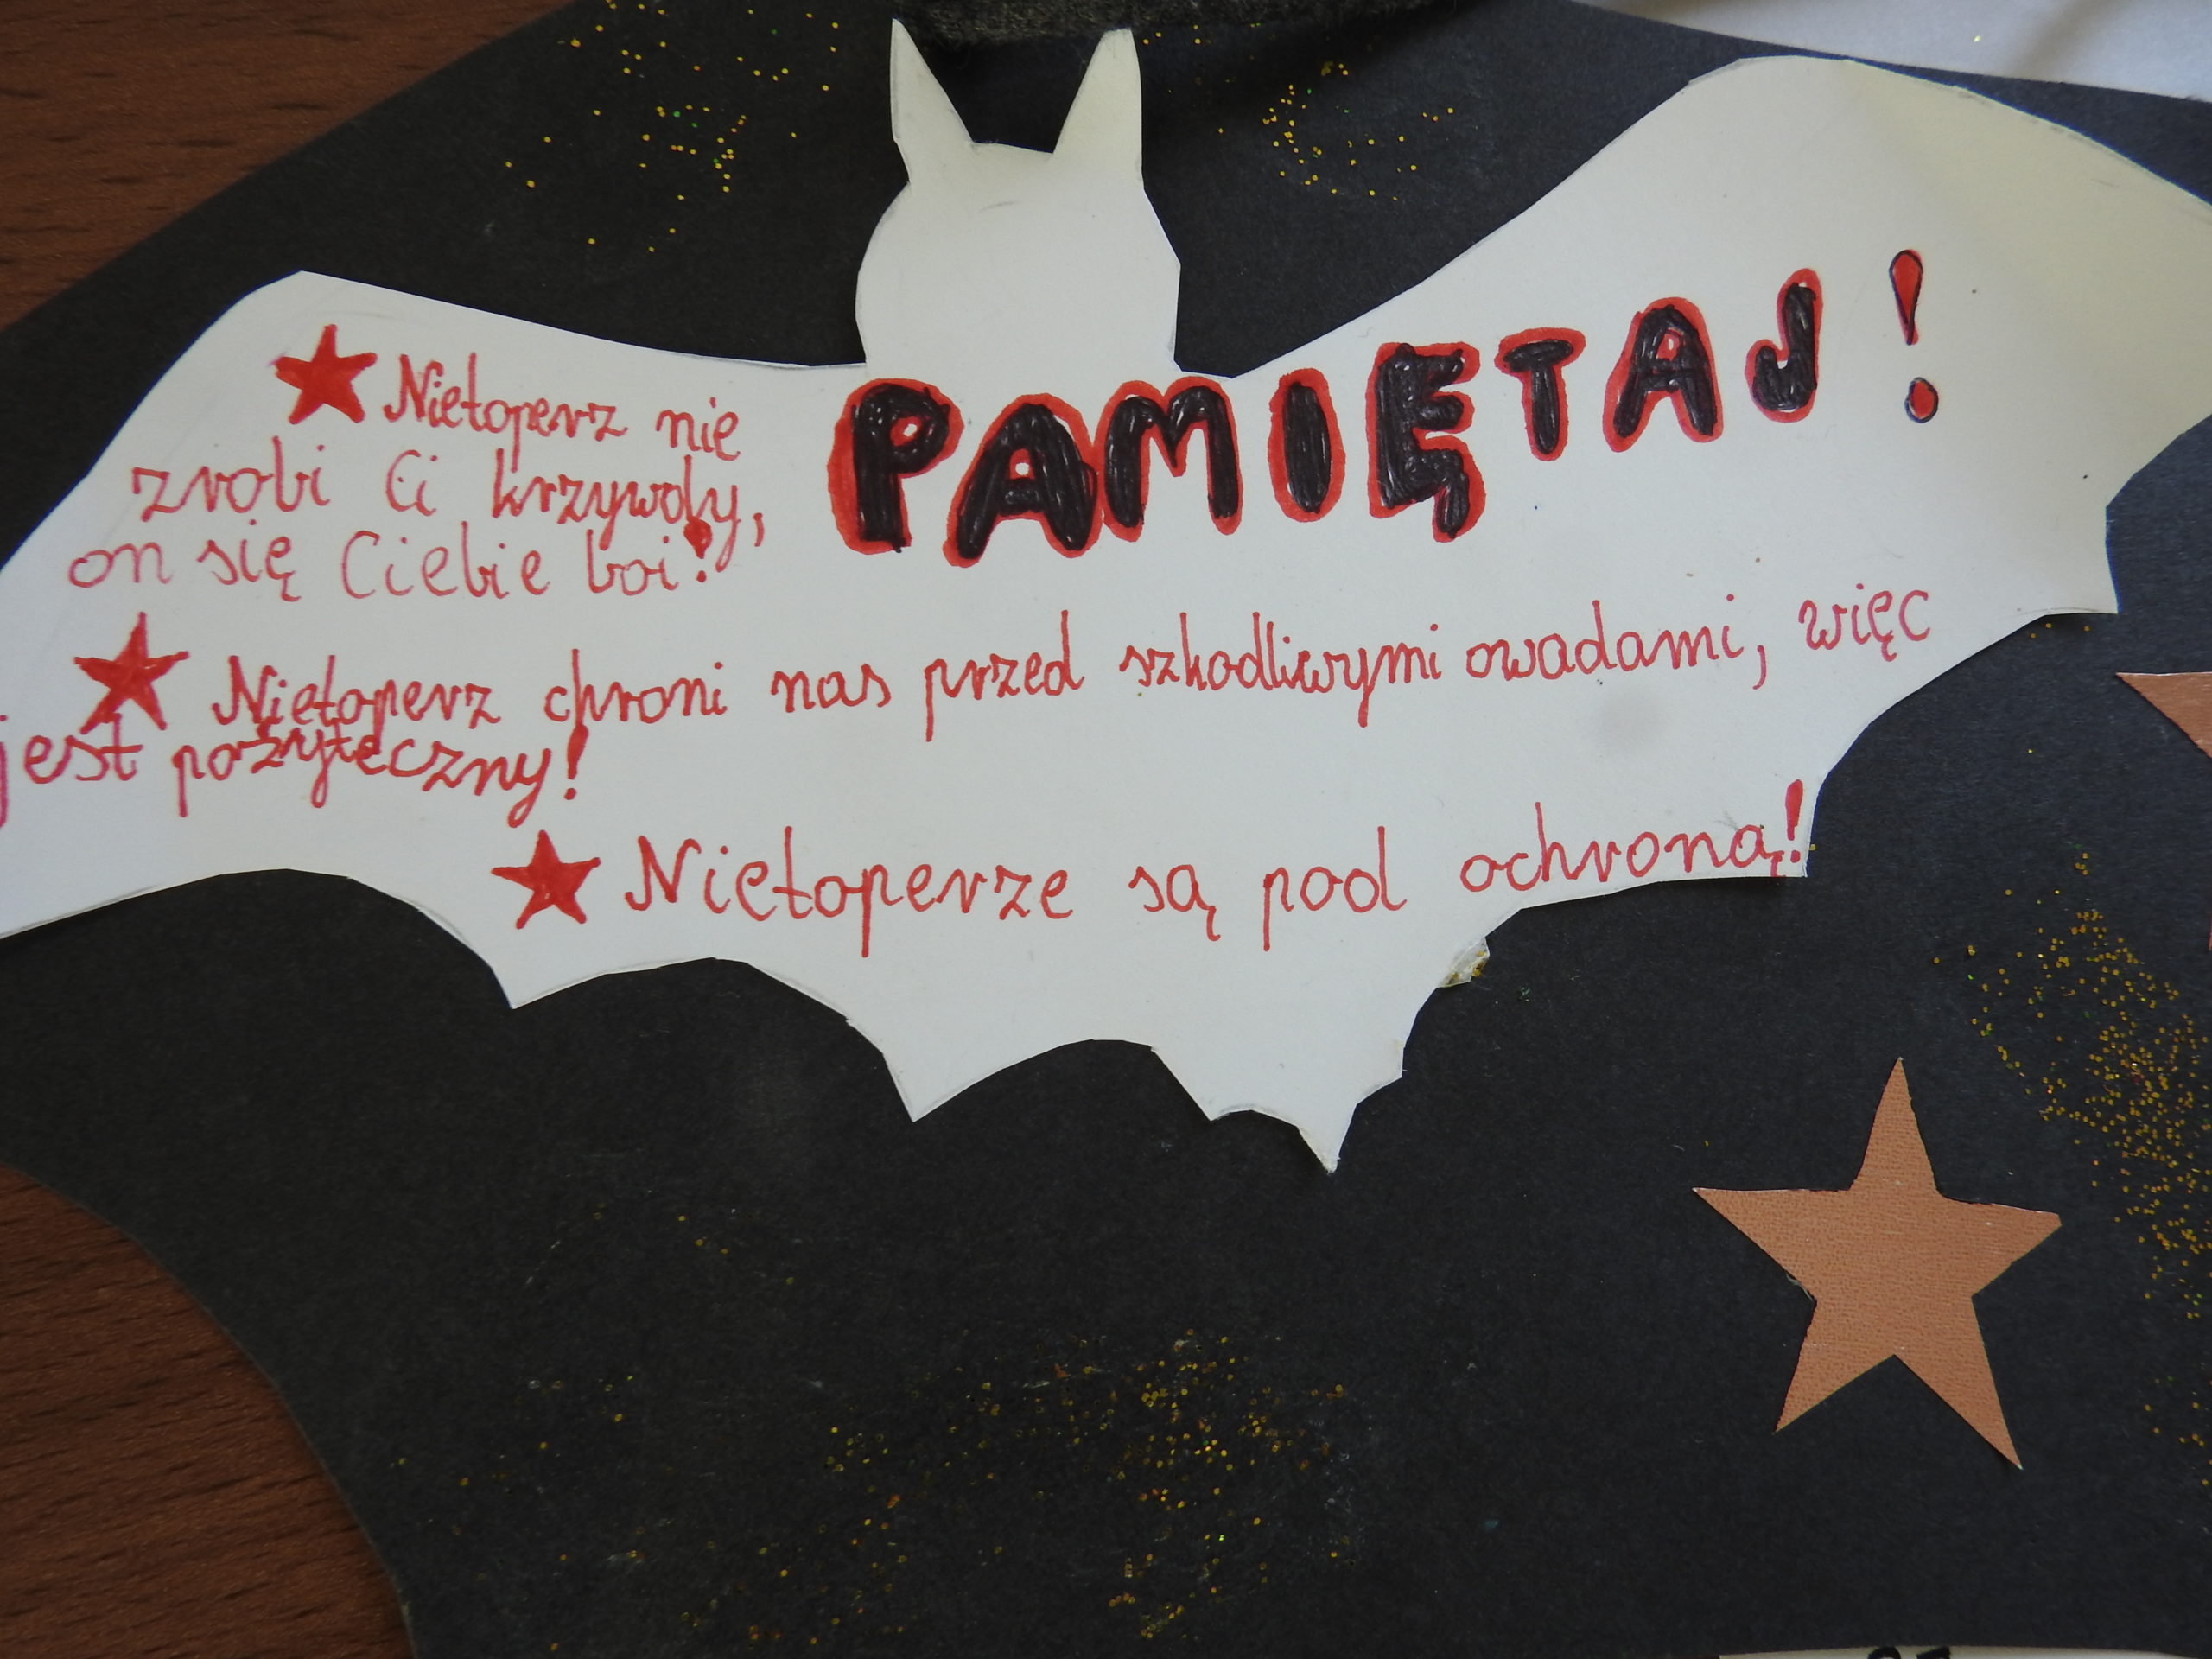 PAMIĘTAJ!
Nietoperz nie
zrobi Ci krzywdy,
on się Ciebie boi!
Nietoperz chroni nas przed szkodliwymi owadami, więc
jest pożyteczny!
Nietoperze są pod ochroną!